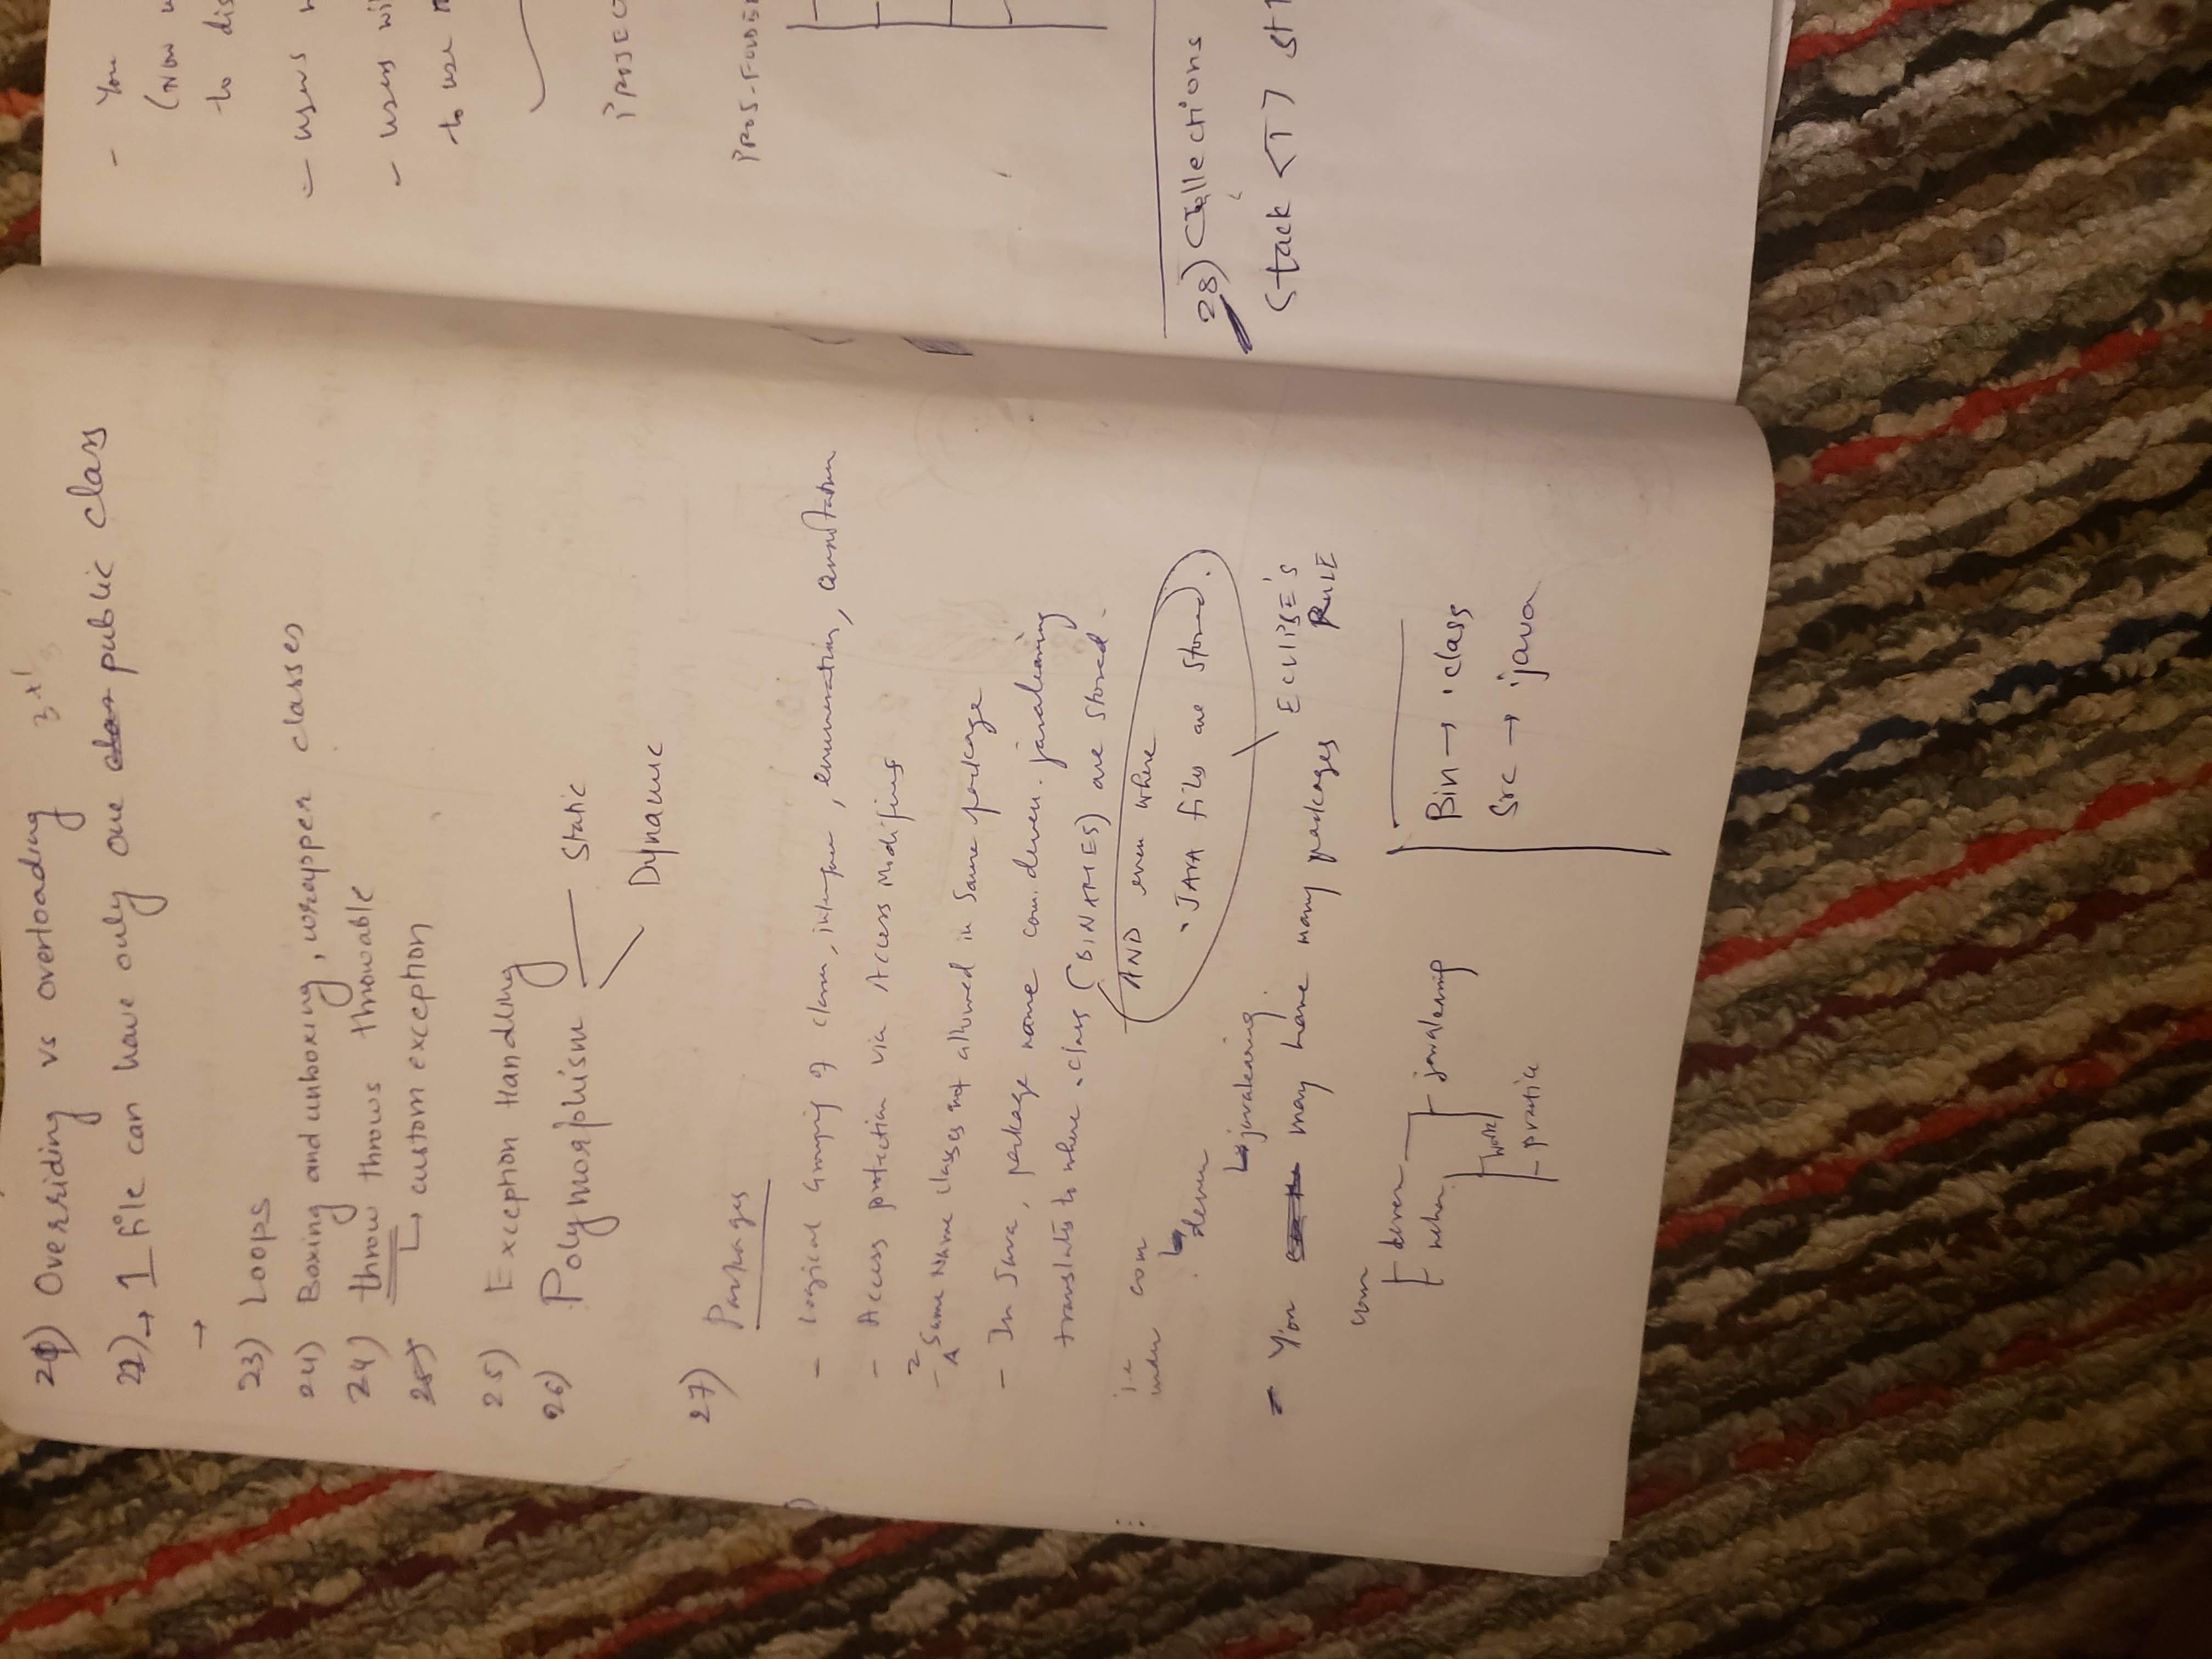 21) Overriding vs overloading 3+1
22) → 1 file can have only one public class
→
23) Loops
24) Boxing and unboxing, wrapper classes
24) throw throws throwable
25)
↳ custom exception
25) Exception Handling
26) Polymorphism
Static
Dynamic
27) Packages
- Logical Grouping of classes, interface, enumeration, annotation
- Access protection via Access Modifiers
- 2 Same Name classes not allowed in Same package
- In Java, package name com.deven.javalearning
translates to where .class (BINARIES) are stored.
AND even where
.JAVA files are stored.
ECLIPSE'S
RULE
i.e
under com
↳ deven
↳ javalearning
- You may have many packages
com
deven
neha
javalearning
work
practice
Bin → .class
Src → .java
- You
(Now
to
- users
- users
to use
PROJEC
PROJ-FOLDE
28) Collections
Stack <T> st1